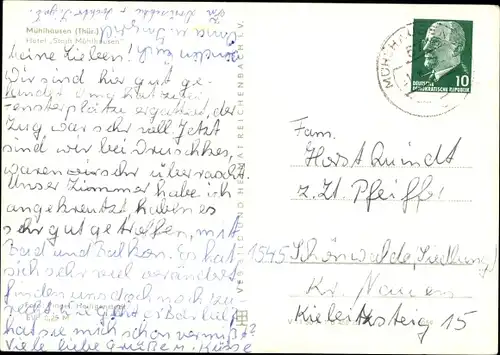 Mühlhausen (Thür.)
Hotel „Stadt Mühlhausen"
Meine Lieben!
Wir sind hier gut ge-
landet. Oma hat zwei
Fensterplätze ergattert, der
Zug war sehr voll. Jetzt
sind wir bei Druschkes,
waren wir sehr überrascht.
Unser Zimmer habe ich
angekreutzt, haben es
sehr gut getroffen, mit
Bad und Balkon. Es hat
sich sehr viel verändert,
finden uns doch noch zu
hat sie mich schon vermißt?
Viele liebe Grüße u. Küsse
VERLAG BILD UND HEIMAT REICHENBACH I. V.
MÜHLHAUSEN
10
DEUTSCHE
DEMOKRATISCHE REPUBLIK
Fam.
Horst Quindt
z. Zt. Pfeiffer
1545 Schönwalde (Siedlung)
Kr. Nauen
Kiebitzsteig 15